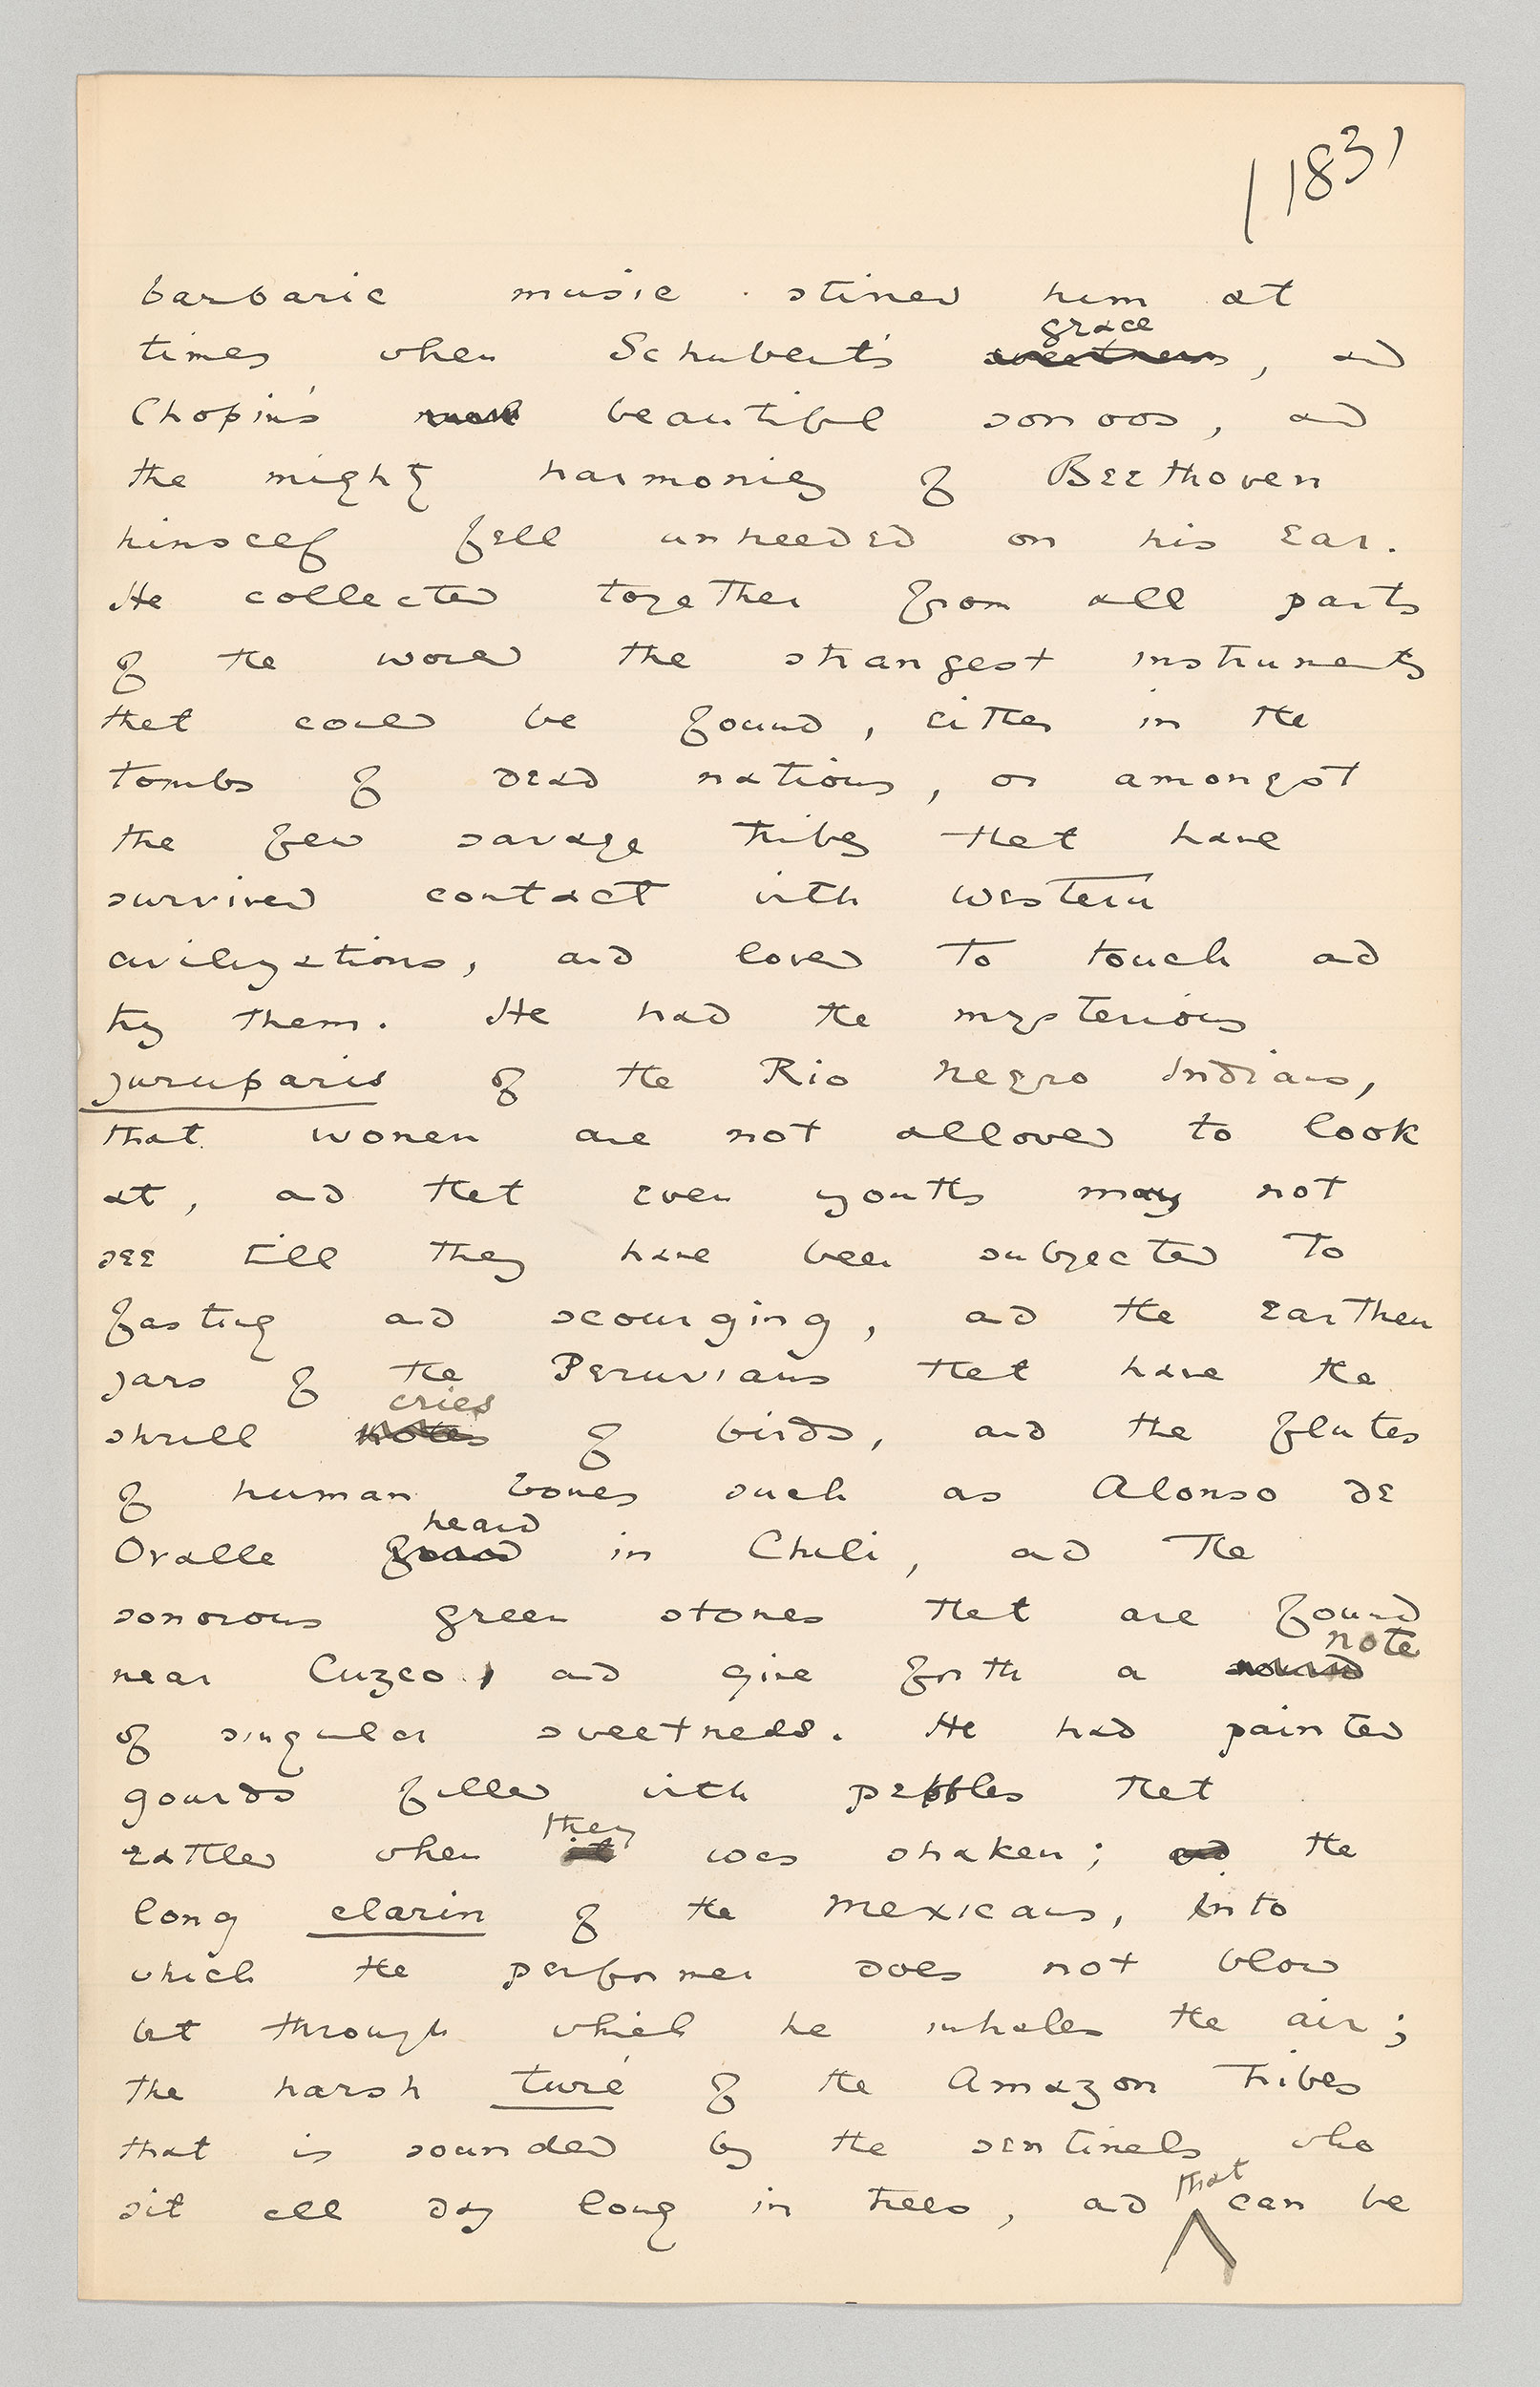 183
barbaric music stirred him at
grace
times when Schubert's sweetness, and
Chopin's beautiful sorrows, and
the mighty harmonies of Beethoven
himself fell unheeded on his ear.
He collected together from all parts
of the world the strangest instruments
that could be found, either in the
tombs of dead nations, or amongst
the few savage tribes that have
survived contact with western
civilizations, and loved to touch and
try them. He had the mysterious
juruparis of the Rio Negro Indians,
that women are not allowed to look
at, and that even youths may not
see till they have been subjected to
fasting and scourging, and the earthen
jars of the Peruvians that have the
cries
shrill notes of birds, and the flutes
of human bones such as Alonso de
heard
Ovalle found in Chili, and the
sonorous green stones that are found
note
near Cuzco, and give forth a sound
of singular sweetness. He had painted
gourds filled with pebbles that
they
rattled when it was shaken; and the
long clarin of the Mexicans, into
which the performer does not blow
but through which he inhales the air;
the harsh turé of the Amazon tribes
that is sounded by the sentinels who
that
sit all day long in trees, and can be